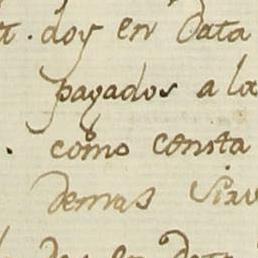 doy en Data
pagados a la
como consta
demas